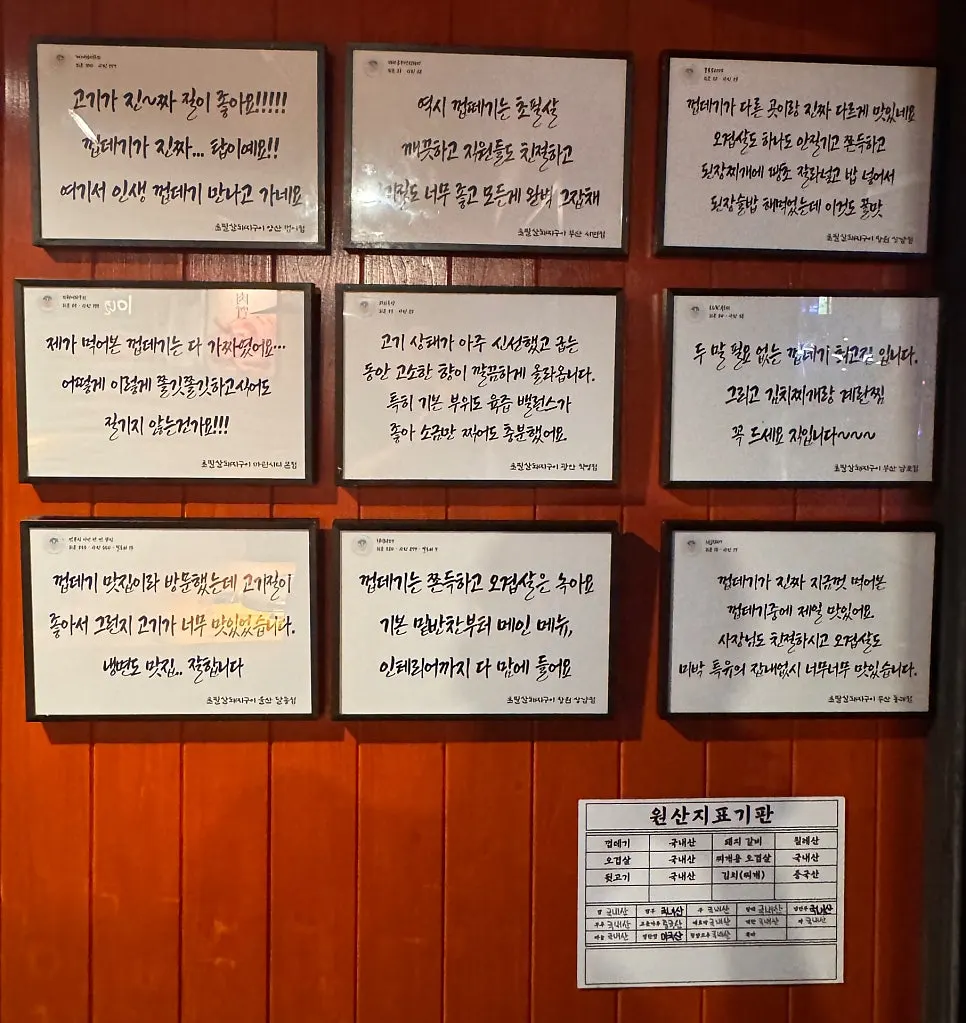 고기가 진~짜 질이 좋아요!!!!!
껍데기가 진짜... 탑이예요!!
여기서 인생 껍데기 만나고 가네요
초필살돼지구이 양산
역시 껍떼기는 초필살
깨끗하고 직원들도 친절하고
너무 좋고 모든게 완벽 그잡채
초필살돼지구이 부산 서면점
껍데기가 다른 곳이랑 진짜 다르게 맛있네요
오겹살도 하나도 안질기고 쫀득하고
된장찌개에 땡초 잘라넣고 밥 넣어서
된장술밥 해먹었는데 이것도 꿀맛
초필살돼지구이 창원 상남점
제가 먹어본 껍데기는 다 가짜였어요...
어떻게 이렇게 쫄깃쫄깃하고식어도
질기지 않는건가요!!!
초필살돼지구이 마린시티 본점
고기 상태가 아주 신선했고 굽는
동안 고소한 향이 깔끔하게 올라옵니다.
특히 기본 부위도 육즙 밸런스가
좋아 소금만 찍어도 충분했어요
초필살돼지구이 광안 직영점
두 말 필요 없는 껍데기 최고집 입니다.
그리고 김치찌개랑 계란찜
꼭 드세요 직입니다~~~
초필살돼지구이 부산
껍데기 맛집이라 방문했는데 고기질이
좋아서 그런지 고기가 너무 맛있었습니다.
냉면도 맛집.. 잘합니다
초필살돼지구이 울산 달동점
껍데기는 쫀득하고 오겹살은 녹아요
기본 밑반찬부터 메인 메뉴,
인테리어까지 다 맘에 들어요
초필살돼지구이 창원 상남점
껍데기가 진짜 지금껏 먹어본
껍데기중에 제일 맛있어요
사장님도 친절하시고 오겹살도
미박 특유의 잡내없시 너무너무 맛있습니다.
초필살돼지구이 부산 동래점
원산지표기판
껍데기 국내산 돼지 갈비 칠레산
오겹살 국내산 찌개용 오겹살 국내산
뒷고기 국내산 김치(찌개) 중국산
쌀 국내산 국내산 무 국내산 국내산 국내산
국내산 중국산 국내산 국내산 파 국내산
마늘 국내산 미국산 국내산